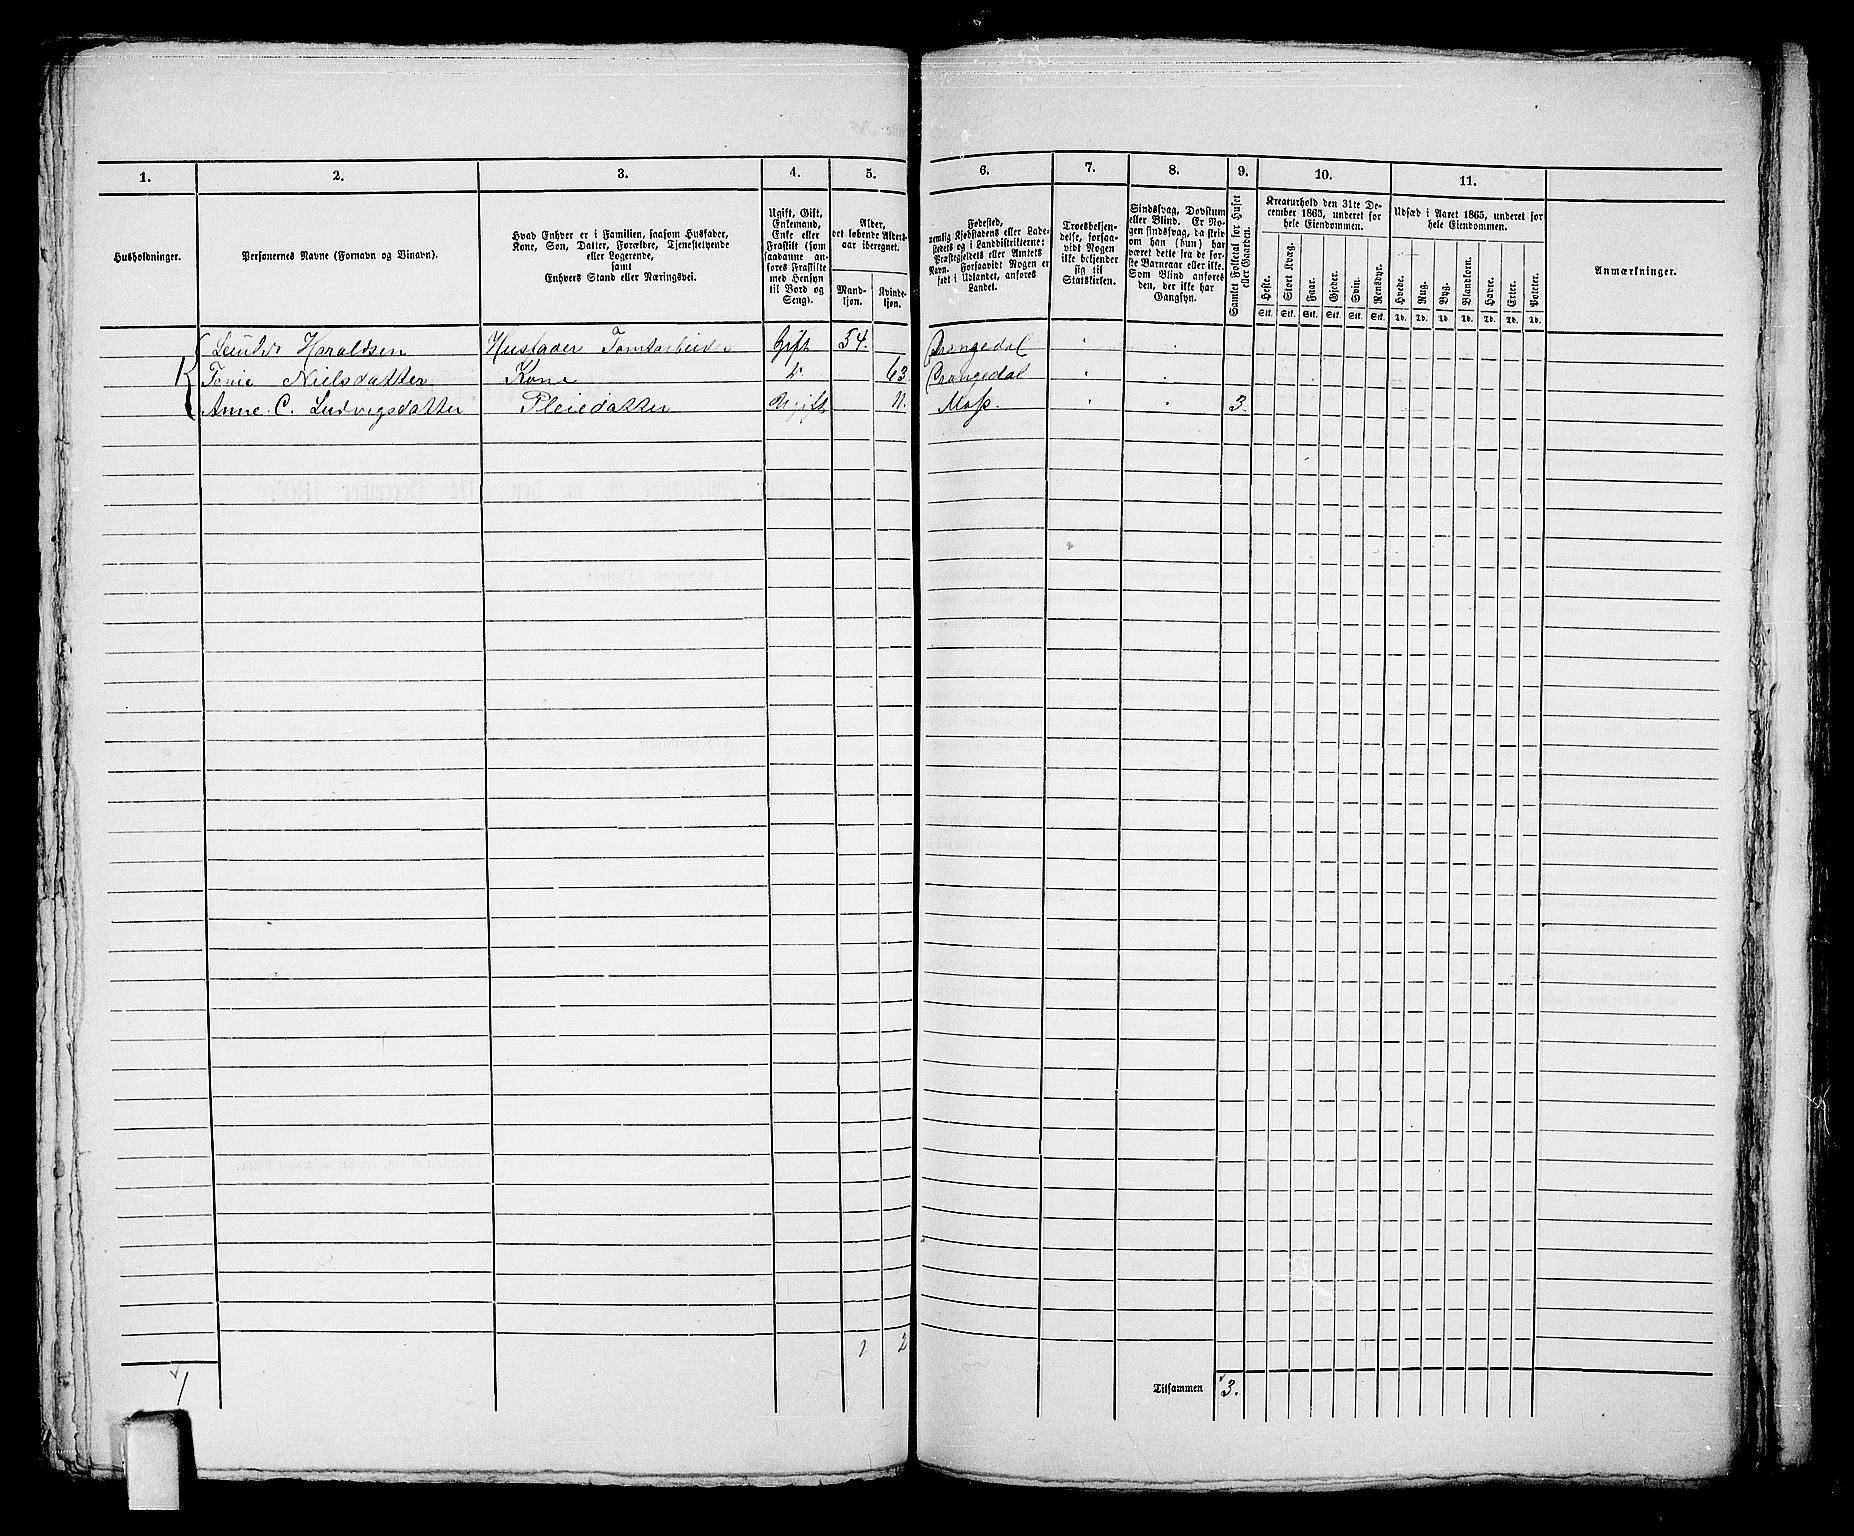 1. 2. 3. 4. 5. 6. 7. 8. 9. 10. 11.
Husholdninger.
Personernes Navne (Fornavn og Binavn).
Hvad Enhver er i Familien, saasom Husfader,
Kone, Søn, Datter, Forældre, Tjenestetyende
eller Logerende,
samt
Enhvers Stand eller Næringsvei.
Ugift, Gift,
Enkemand,
Enke eller
Fraskilt (som
saadanne an-
føres Fraskilte
med Hensyn
til Bord og
Seng).
Alder,
det løbende Alders-
aar iberegnet.
Mand-
kjøn.
Kvinde-
kjøn.
Fødested,
nemlig Kjøbstadens eller Lade-
stedets og i Landdistrikterne:
Præstegjeldets eller Amtets
Navn. Forsaavidt Nogen er
født i Udlandet, anføres
Landet.
Troesbekjen-
delse, forsaa-
vidt Nogen
ikke bekjender
sig til
Statskirken.
Sindssvag, Døvstum
eller Blind. Er No-
gen sindssvag, da skriv
om han (hun) har
været dette fra de før-
ste Barneaar eller ikke.
Som Blind anføres
den, der ikke har
Gangsyn.
Samlet Folketal for Huset
eller Gaarden.
Kreaturhold den 31te De-
cember 1865, underet for
hele Eiendommen.
Heste. Stort Kvæg. Faar. Gjeder. Svin. Rensdyr.
Stk. Stk. Stk. Stk. Stk. Stk.
Udsæd i Aaret 1865, underet for
hele Eiendommen.
Hvede. Rug. Byg. Blandkorn. Havre. Erter. Poteter.
Td. Td. Td. Td. Td. Td. Td.
Anmærkninger.
Haraldsen Husfader Gift 54.
Nielsdatter Kone do 63 Drangedal
Anne C. Ludvigsdatter Pleiedatter Ugift 11. Moss. 3.
1 2
1 Tilsammen 3.